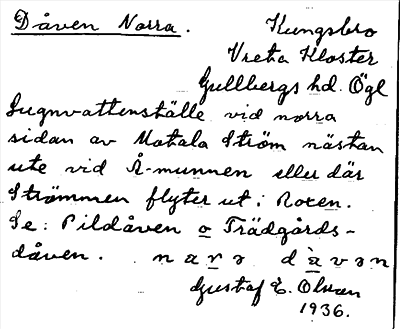 Dåven Norra.
Kungsbro
Vreta Kloster
Gullbergs hd. Ögl
Lugnvattenställe vid norra
sidan av Motala Ström nästan
ute vid Å-munnen eller där
Strömmen flyter ut i Roxen.
Se: Pildåven o Trädgårds-
dåven. narə dåvən
Gustaf E. Olsson
1936.